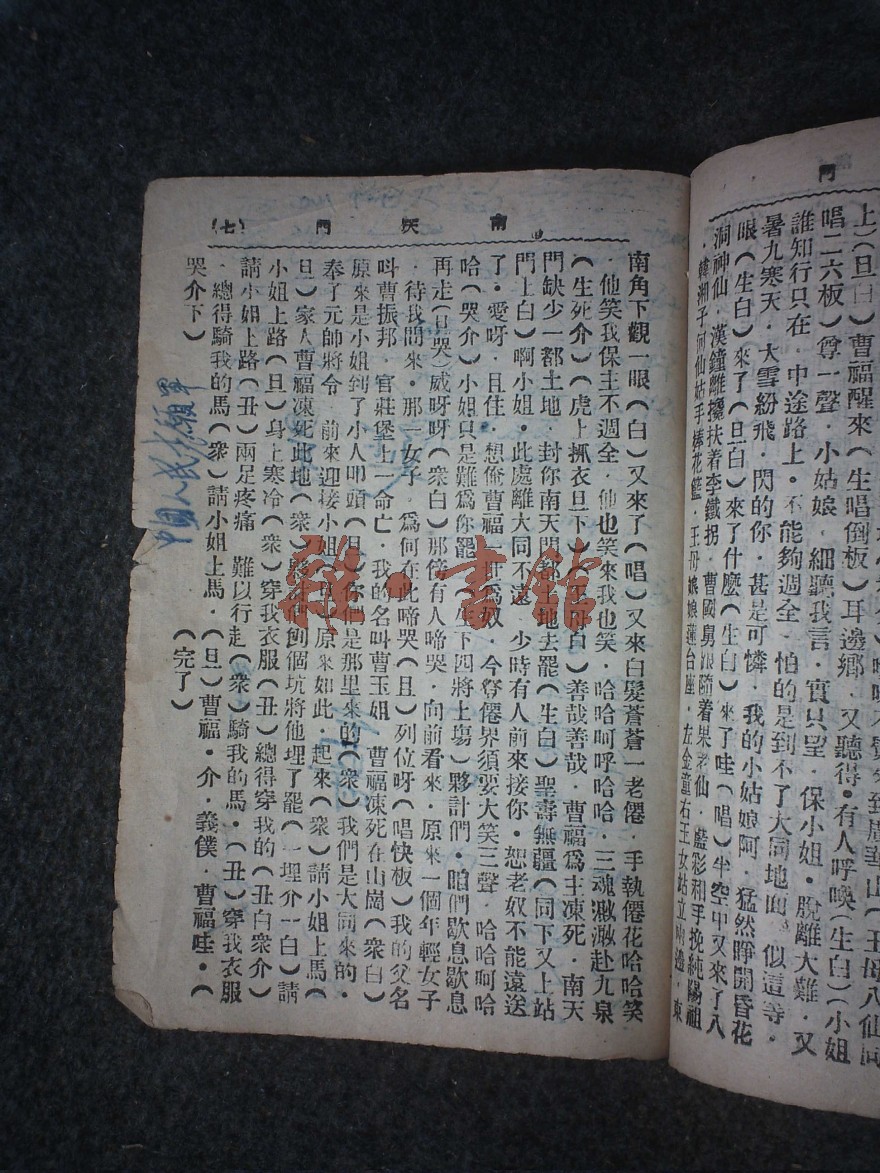 門
上)(旦白)曹福醒來(生唱倒板)耳邊鄉·又聽得·有人呼喚(生白)(小姐
唱二六板)尊一聲·小姑娘·細聽我言·實只望·保小姐·脫離大難·又
誰知行只在·中途路上·不能夠週全·怕的是到不了大同地面·似這等·
暑九寒天·大雪紛飛·閃的你·甚是可憐·我的小姑娘阿·猛然睜開昏花
眼(生白)來了(旦白)來了什麼(生白)來了哇(唱)半空中又來了八
洞神仙·漢鐘離攙扶着李鐵拐·曹國舅跟隨着果老仙·藍彩和手挽純陽祖
·韓湘子何仙姑手捧花籃·王母娘娘蓮台座·左金童右玉女站立兩邊·東
南天門
(七)
南角下觀一眼(白)又來了(唱)又來白髮蒼蒼一老僊·手執僊花哈哈笑
·他笑我保主不週全·他也笑來我也笑·哈哈呵呼哈哈·三魂渺渺赴九泉
(生死介)(虎上抓衣旦下)(王母白)善哉善哉·曹福爲主凍死·南天
門缺少一都土地·封你南天門都土地去罷(生白)聖壽無疆(同下又上站
門上白)啊小姐·此處離大同不遠·少時有人前來接你·恕老奴不能遠送
了·愛呀·且住·想俺曹福一世爲奴·今奪僊界須要大笑三聲·哈哈呵哈
哈(哭介)小姐只是難爲你罷(生下四將上場)夥計們·咱們歇息歇息
再走(甘哭)威呀呀(衆白)那傍有人啼哭·向前看來·原來一個年輕女子
·待我問來·那一女子·爲何在此啼哭(旦)列位呀(唱快板)我的父名
叫曹振邦·官莊堡上一命亡·我的名叫曹玉姐 曹福凍死在山崗(衆白)
原來是小姐到了小人叩頭(旦)你們是那里來的(衆)我們是大同來的·
奉了元帥將令·前來迎接小姐(旦)原來如此·起來(衆)請小姐上馬(
旦)家人曹福凍死此地(衆)夥計們刨個坑將他埋了罷(一埋介一白)請
小姐上路(旦)身上寒冷(衆)穿我衣服(丑)總得穿我的(丑白衆介)
請小姐上路(丑)兩足疼痛 難以行走(衆)騎我的馬·(丑)穿我衣服
·總得騎我的馬(衆)請小姐上馬·(旦)曹福·介·義僕·曹福哇·(
哭介下)
(完了)
中國人民志願軍
雜·書館